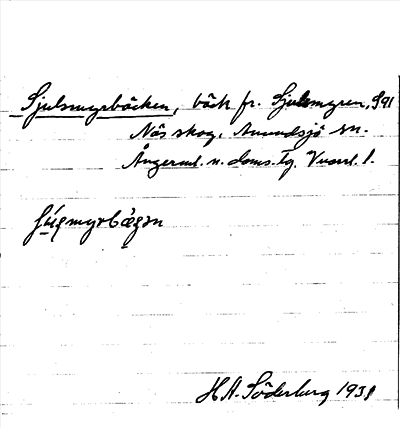 Sjulsmyrbäcken, bäck fr. Sjulsmyren, S91
Näs skog, Anundsjö sn.
Ångerml. n. doms. tg. Vnorrl. l.
H.A. Söderberg 1938